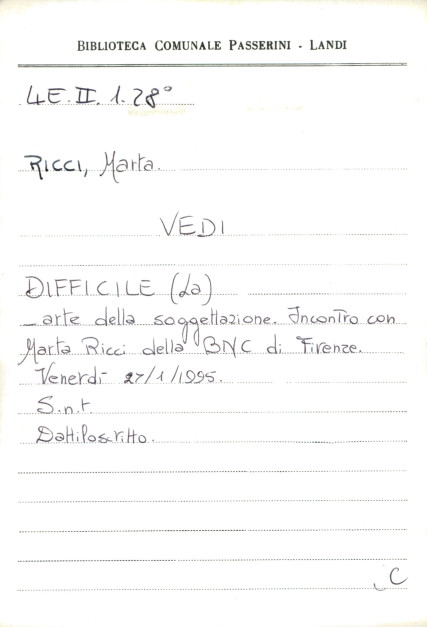 BIBLIOTECA COMUNALE PASSERINI - LANDI
4E. II. 1. 28°
RICCI, Marta.
VEDI
DIFFICILE (La)
_ arte della soggettazione. Incontro con
Marta Ricci della BNC di Firenze.
Venerdì 27/1/1995.
S.n.t.
Dattiloscritto.
C